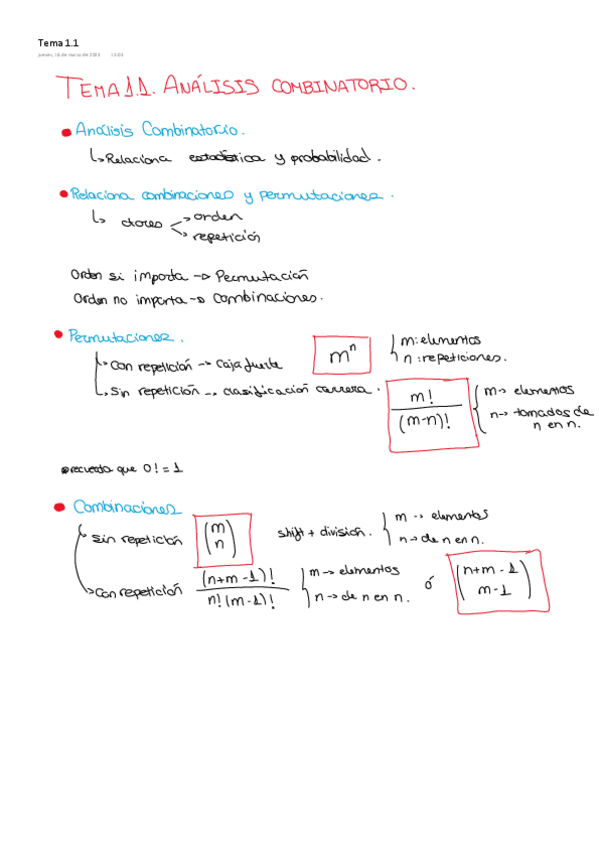 Tema 1.1
jueves, 16 de marzo de 2023
TEMA 1.1. ANÁLISIS COMBINATORIO.
• Análisis Combinatorio.
↳ Relaciona estadística y probabilidad.
• Relaciona combinaciones y permutaciones.
↳ claves < → orden
→ repetición
Orden si importa → Permutación
Orden no importa → Combinaciones.
• Permutaciones.
Con repetición → caja fuerte mⁿ { m: elementos
n: repeticiones.
Sin repetición → clasificación carrera. m! / (m-n)! { m → elementos
n → tomados de
n en n.
• recuerda que 0! = 1
• Combinaciones
Sin repetición (m n) shift + división. { m → elementos
n → de n en n.
Con repetición (n+m-1)! / n!(m-1)! { m → elementos
n → de n en n. ó (n+m-1 m-1)